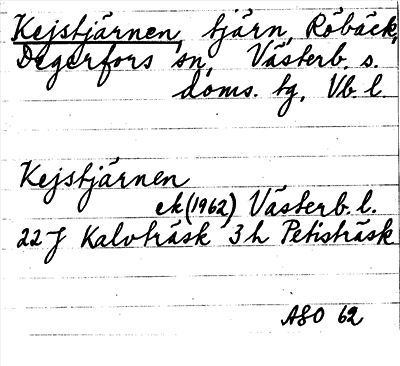 Kejstjärnen, tjärn, Röbäck,
Degerfors sn, Västerb. s.
doms. tg, Vb. l.
Kejstjärnen
ek (1962) Västerb. l.
22 J Kalvträsk 3 h Petisträsk
ASO 62